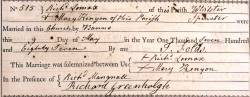 No 515 Richd Lomax of this Parish Whitster
& Mary Kenyon of this Parish Spinster were
Married in this Church by Banns
this 9 Day of May in the Year One Thousand Seven Hundred
and Eighty Seven By T. Foulds
This Marriage was solemnized between Us Richd Lomax
Mary Kenyon
In the Presence of Richd Mangnall
Richard Greenhalgh